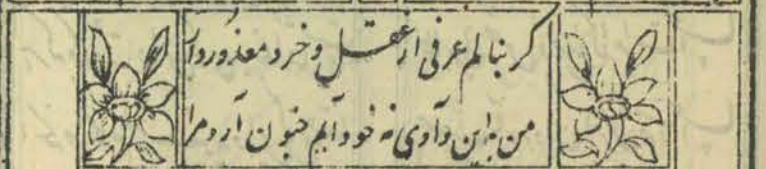 گر بنالم عرفی از عقل و خرد معذور دار
من به این وادی نه خود آیم جنون آرد مرا